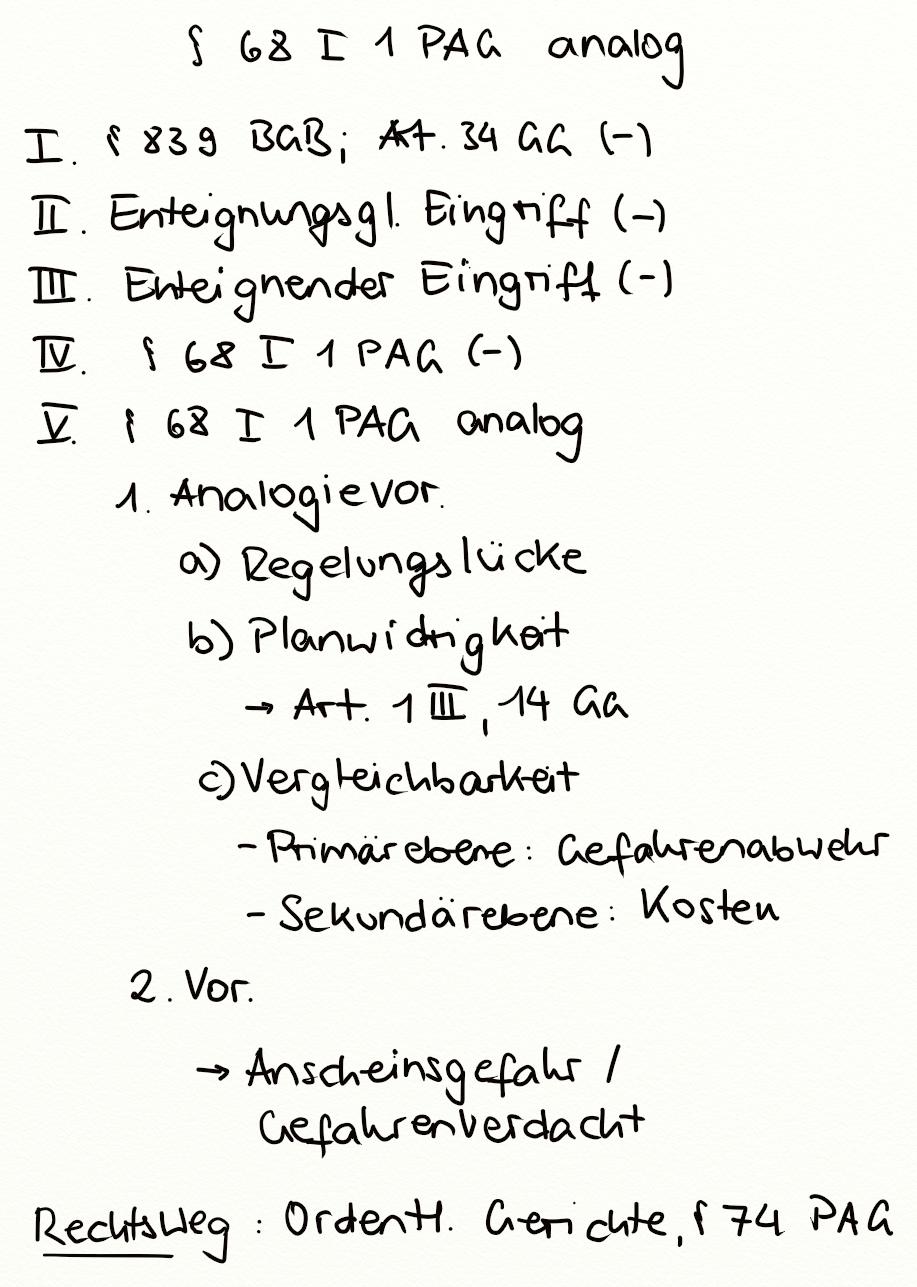 § 68 I 1 PAG analog
I. § 839 BGB; Art. 34 GG (-)
II. Enteignungsgl. Eingriff (-)
III. Enteignender Eingriff (-)
IV. § 68 I 1 PAG (-)
V. § 68 I 1 PAG analog
1. Analogievor.
a) Regelungslücke
b) Planwidrigkeit
→ Art. 1 III, 14 GG
c) Vergleichbarkeit
- Primärebene: Gefahrenabwehr
- Sekundärebene: Kosten
2. Vor.
→ Anscheinsgefahr /
Gefahrenverdacht
Rechtsweg: Ordentl. Gerichte, § 74 PAG